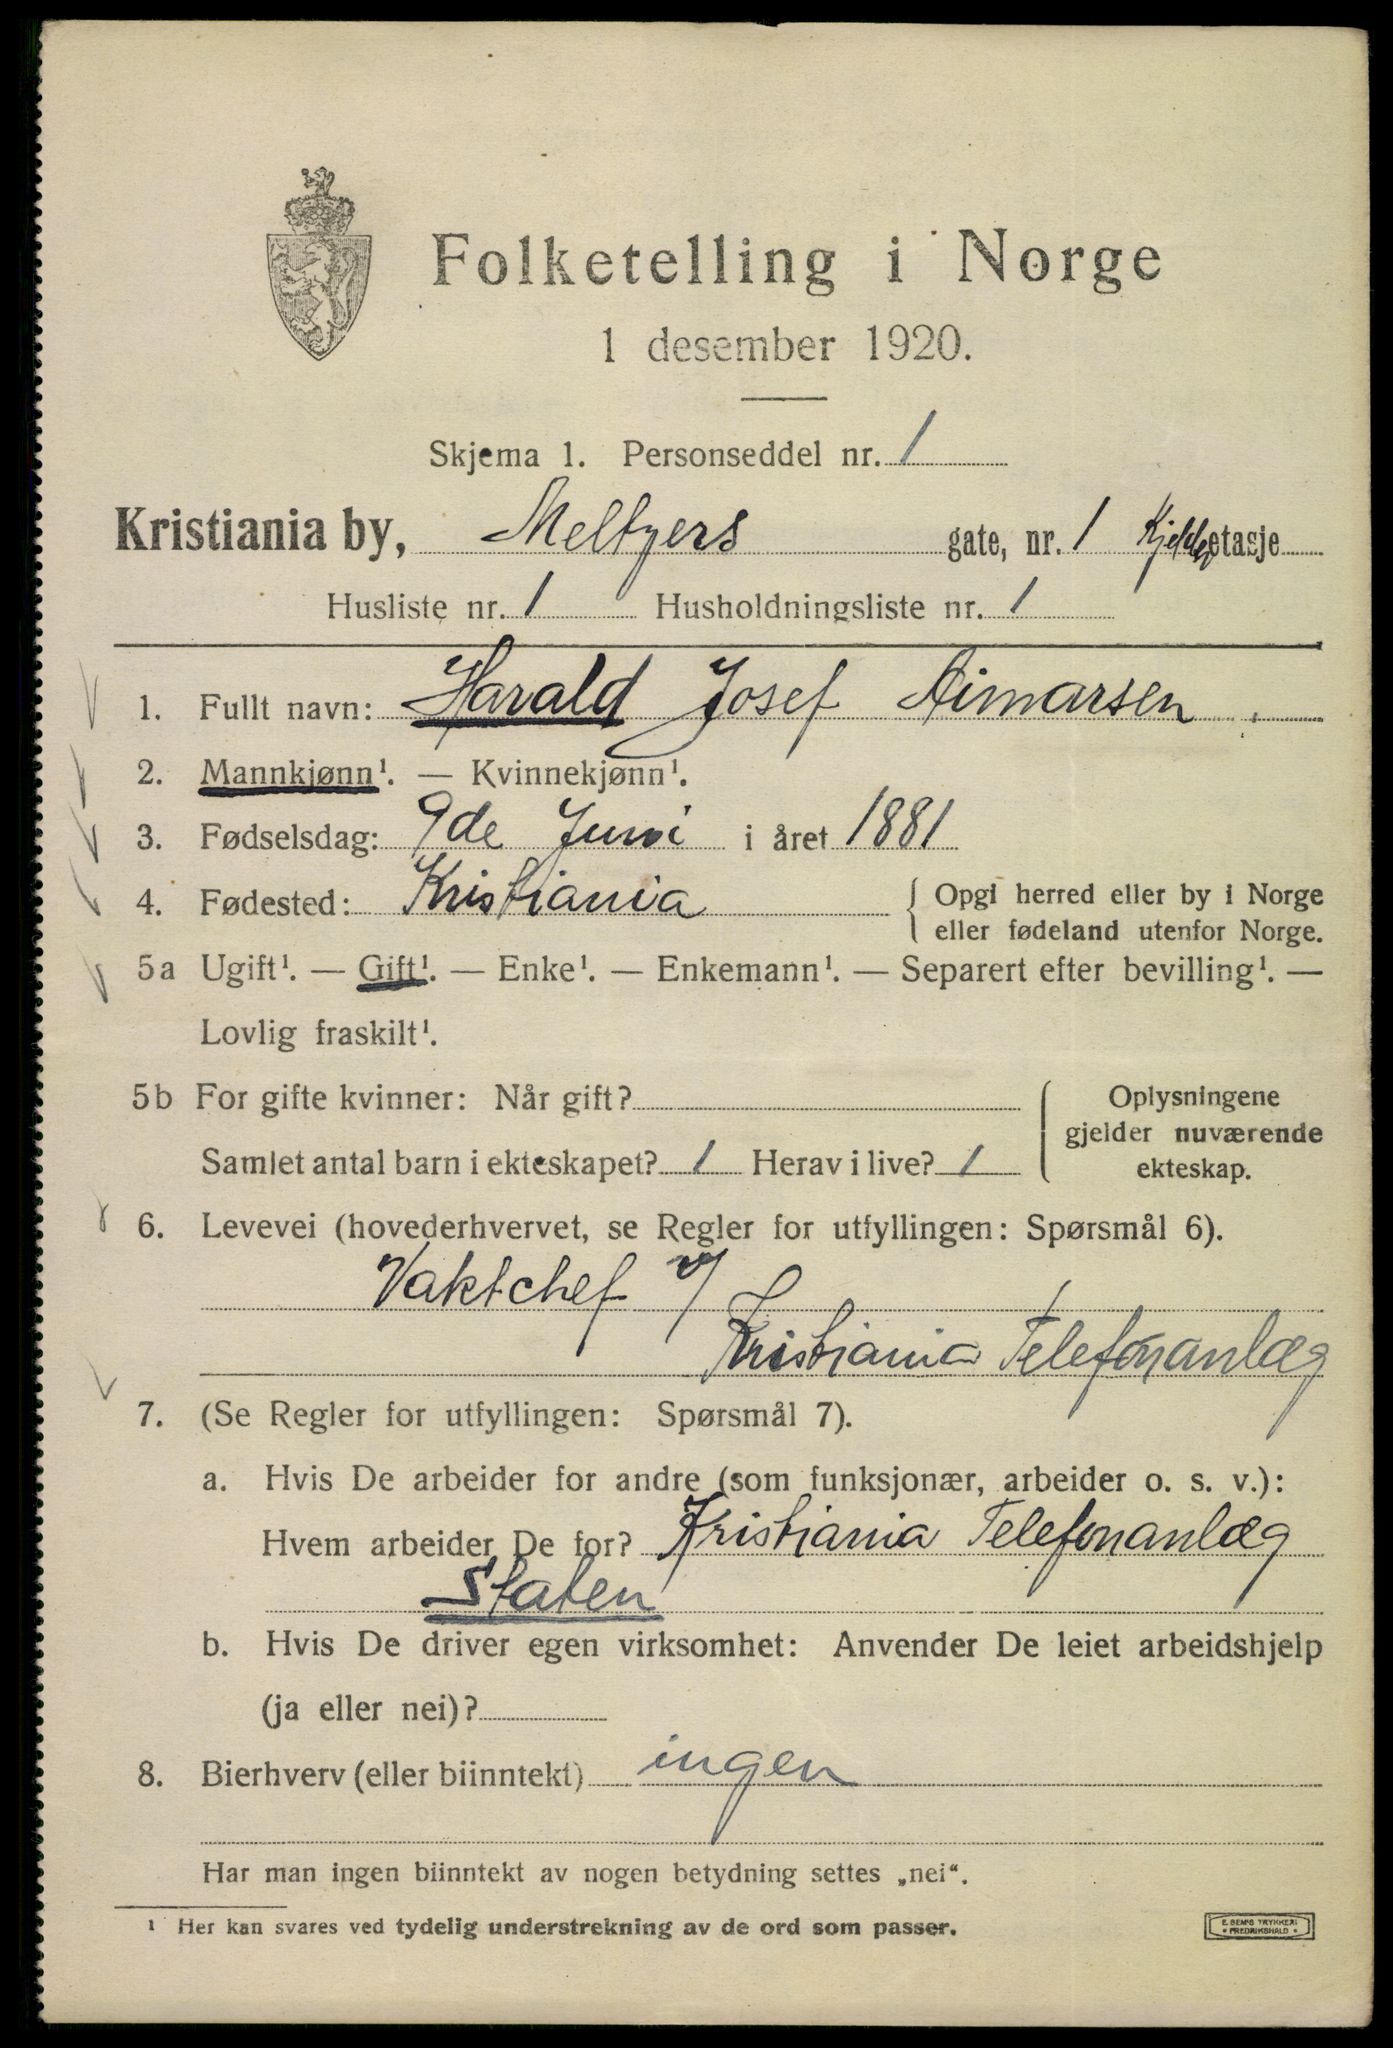 Folketelling i Norge
1 desember 1920.
Skjema 1. Personseddel nr. 1
Kristiania by, Meltzers gate, nr. 1 Kjelder etasje
Husliste nr. 1 Husholdningsliste nr. 1
1. Fullt navn: Harald Josef Aimarsen
2. Mannkjønn¹. — Kvinnekjønn¹.
3. Fødselsdag: 9de Juni i året 1881
4. Fødested: Kristiania { Opgi herred eller by i Norge
eller fødeland utenfor Norge.
5a Ugift¹. — Gift¹. — Enke¹. — Enkemann¹. — Separert efter bevilling¹. —
Lovlig fraskilt¹.
5b For gifte kvinner: Når gift? { Oplysningene
gjelder nuværende
Samlet antal barn i ekteskapet? 1 Herav i live? 1 ekteskap.
6. Levevei (hovederhvervet, se Regler for utfyllingen: Spørsmål 6).
Vaktchef v/
Kristiania Telefonanlæg
7. (Se Regler for utfyllingen: Spørsmål 7).
a. Hvis De arbeider for andre (som funksjonær, arbeider o. s. v.):
Hvem arbeider De for? Kristiania Telefonanlæg
Staten
b. Hvis De driver egen virksomhet: Anvender De leiet arbeidshjelp
(ja eller nei)?
8. Bierhverv (eller biinntekt) ingen
Har man ingen biinntekt av nogen betydning settes „nei“.
¹ Her kan svares ved tydelig understrekning av de ord som passer.
E. SEM'S TRYKKERI
• FREDRIKSHALD •